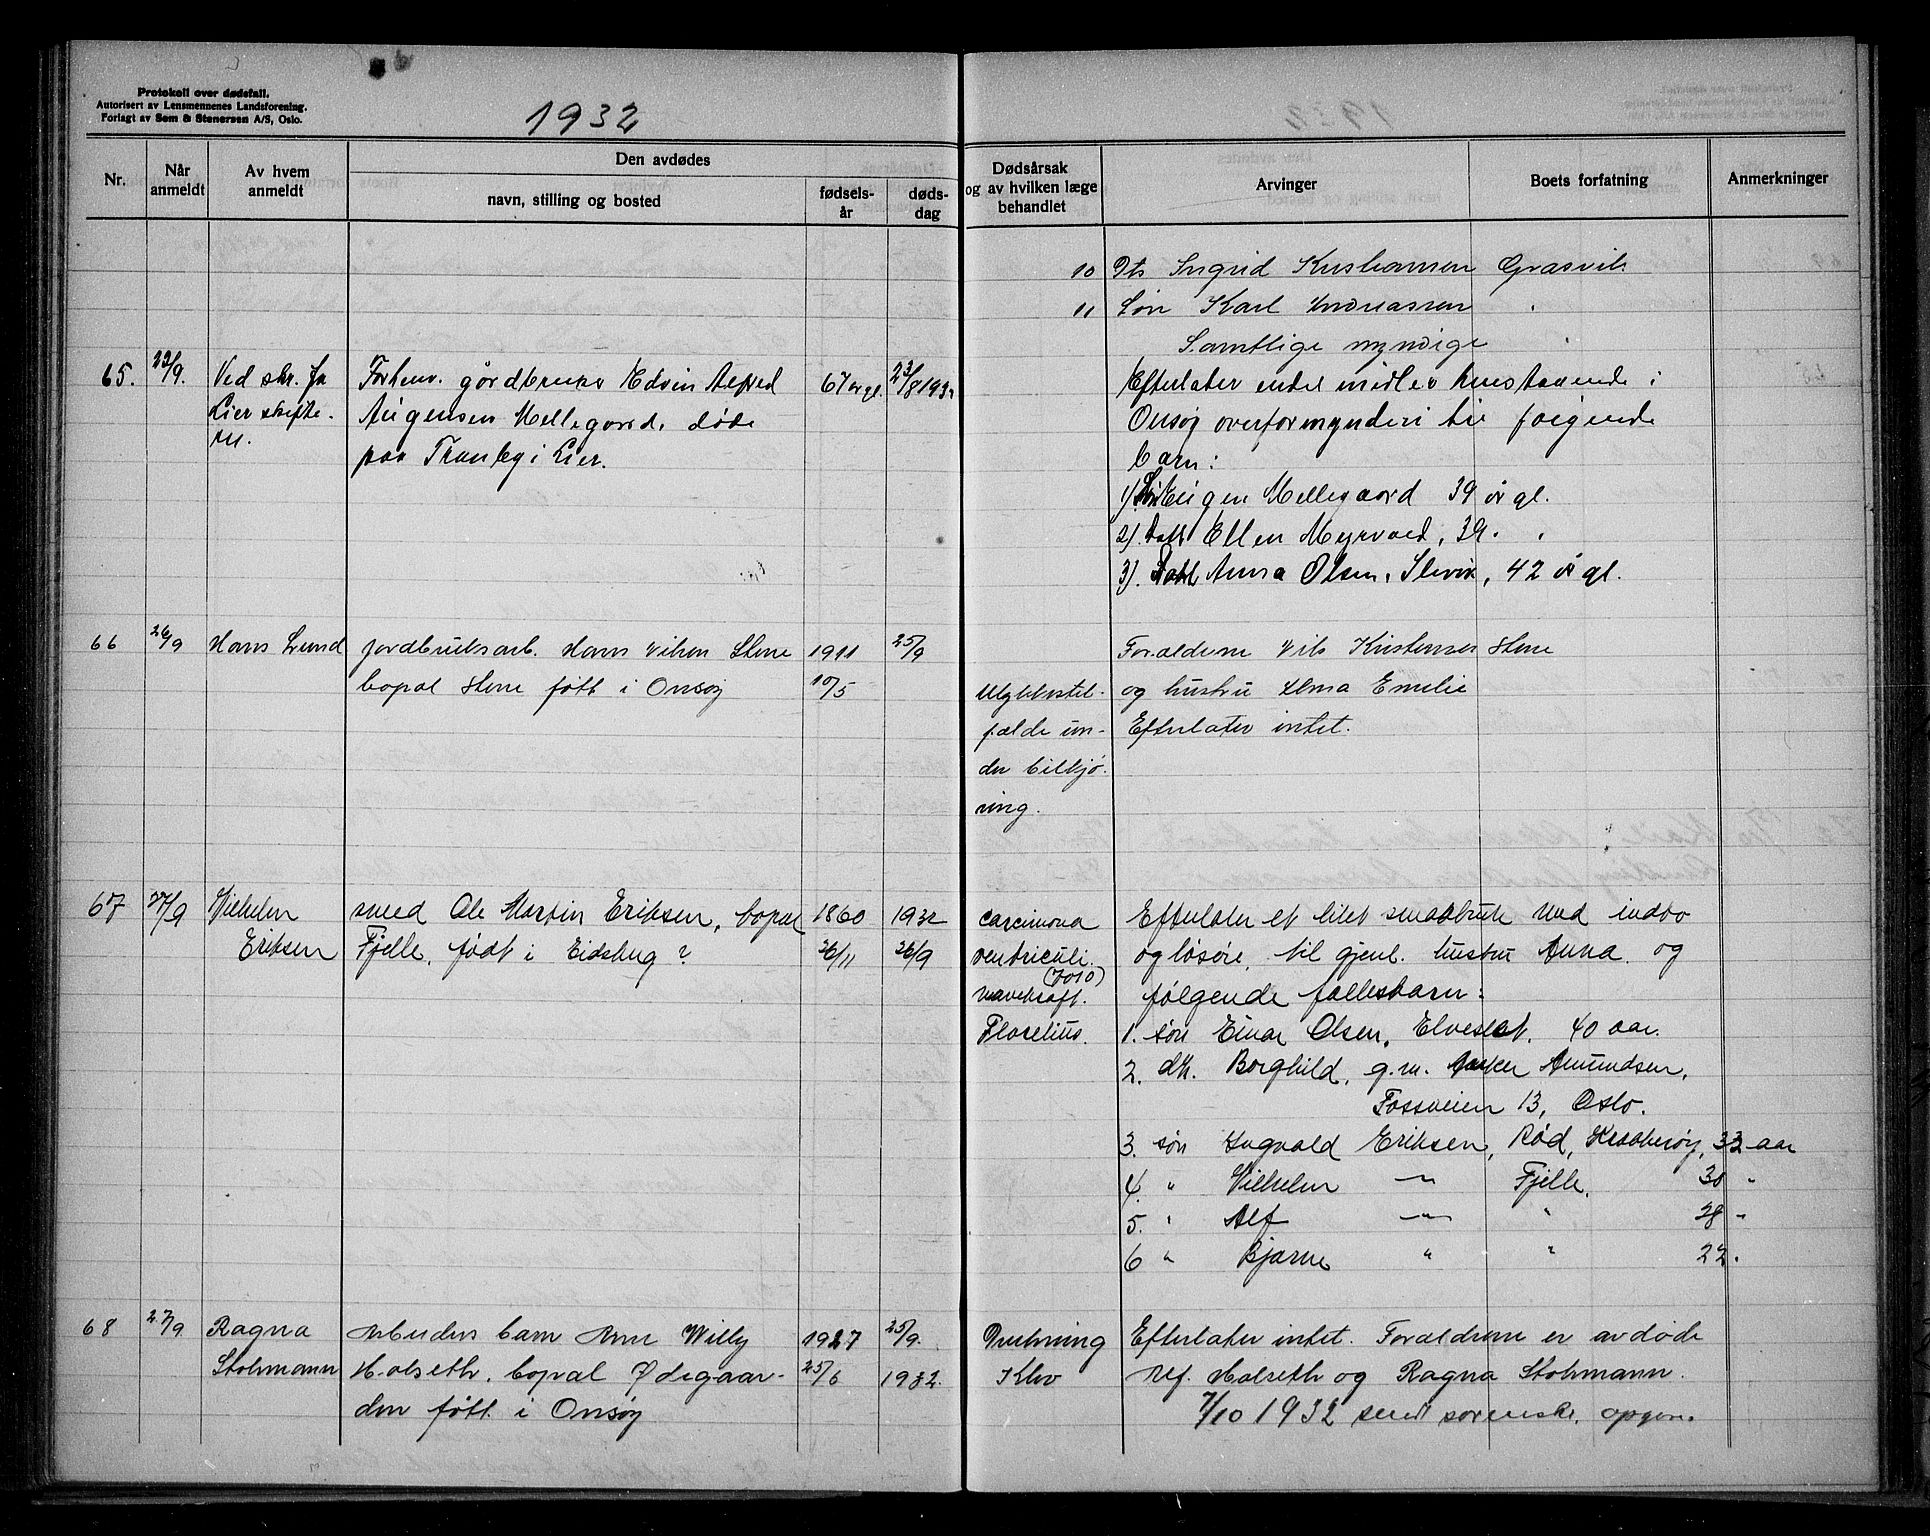 Protokoll over dødsfall.
Autorisert av Lensmennenes Landsforening.
Forlagt av Sem & Stenersen A/S, Oslo.
1932
Nr.
Når anmeldt
Av hvem anmeldt
Den avdødes
navn, stilling og bosted
fødsels-år
døds-dag
Dødsårsak og av hvilken læge behandlet
Arvinger
Boets forfatning
Anmerkninger
10 Dtr Ingrid Kristiansen Græsvik
11 Søn Karl Andreassen "
Samtlige myndige
65. 23/9. Ved skr. fra Lier skifte-
Forhenv. gårdbruker Edvin Alfred
Mellegaard, døde
paa Tranby i Lier.
67 år gl.
23/8 1932
Efterlater endel midler innestaaende i
Onsøy overformynderi til følgende
barn:
1) Søn Eugen Mellegaard 39 år gl.
2). Datt Ellen Myrvold, 39 " "
3). Datt Anna Olsen, Slevik, 42 år gl.
66 26/9 Hans Lund
jordbruksarb. Hans Nilsen Stene
bopæl Stene født i Onsøy
1911
10/5
25/9
Ulykkestil-
fælde un-
der bilkjø-
ring.
Forældrene Nils Kristensen Stene
og hustru Alma Emelie
Efterlater intet.
67 27/9 Vilhelm
Eriksen
smed Ole Martin Eriksen, bopæl
Fjelle, født i Eidsberg ?
1860
26/11
1932
26/9
Carcinoma
ventriculi.
(7010)
mavekræft.
Efterlater et litet småbruk med indbo
og løsøre, til gjenl. hustru Anna og
følgende fællesbarn:
1. søn Einar Olsen, Elveslet, 40 aar.
2. dtr. Borghild, g.m. Amundsen,
Fossveien 13, Oslo.
3. søn Ingvald Eriksen, Rød, Kråkerøy, 33 aar
4. " Vilhelm — " — Fjelle, 30 "
5. " Alf — " — " 28 "
6 " Bjarne " " 22 "
68 27/9 Ragna
Stohmann
Arbeiders barn Arne Willy
Holseth, bopæl Ødegaar-
den født i Onsøy
1927
25/6
25/9.
1932.
Drukning
Efterlater intet. Forældrene er avdøde
Alf. Holseth og Ragna Stohmann.
7/10 1932 sendt sorenskr. opgave